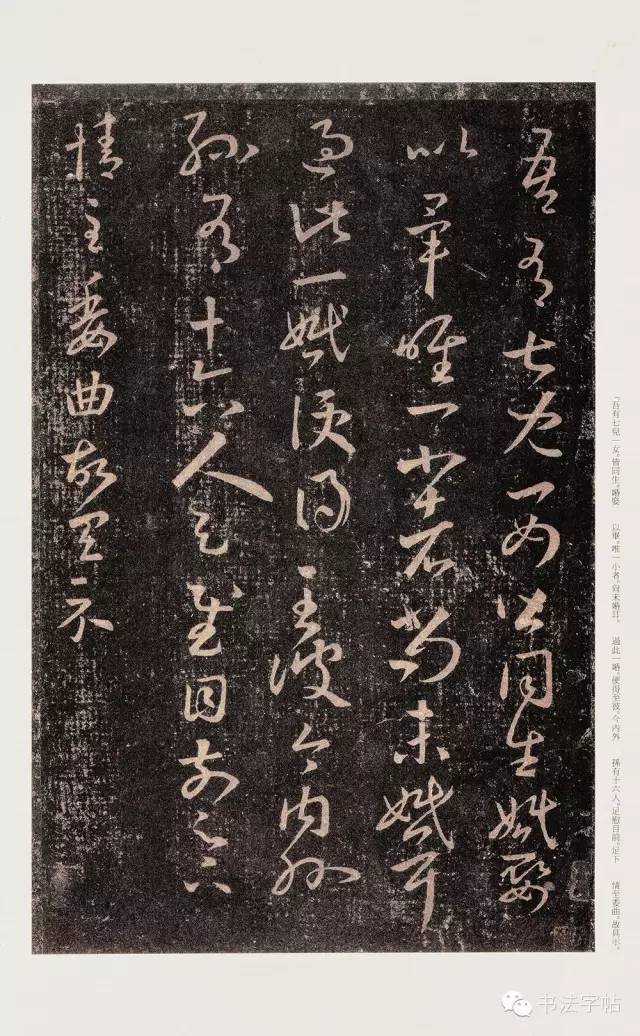 吾有七兒一女皆同生婚娶
以畢唯一小者尚未婚耳
過此一婚便得至彼今内外
孫有十六人足慰目前足下
情至委曲故具示
「吾有七兒一女。皆同生。婚娶
以畢。唯一小者。尚未婚耳。
過此一婚。便得至彼。今内外
孫有十六人。足慰目前。足下
情至委曲。故具示。
书法字帖